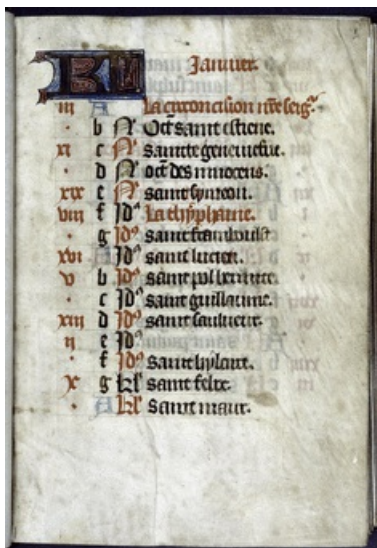 KL Januier.
iii A La circoncision nr̄e seigr.
. b N Oct saint estiene.
xi c N Saincte geneuiefue.
. d N oct des innocens.
xix e N saint symeon.
viii f Id9 La thyphaine.
. g Id9 saint framboult
xvi A Id9 saint lucien.
v b Id9 saint pol
. c Id9 saint guillaume.
xiii d Id9 saint sauueur.
ii e Id9
. f Id9 saint hylaire.
x g kl saint felix.
. A kl saint maur.